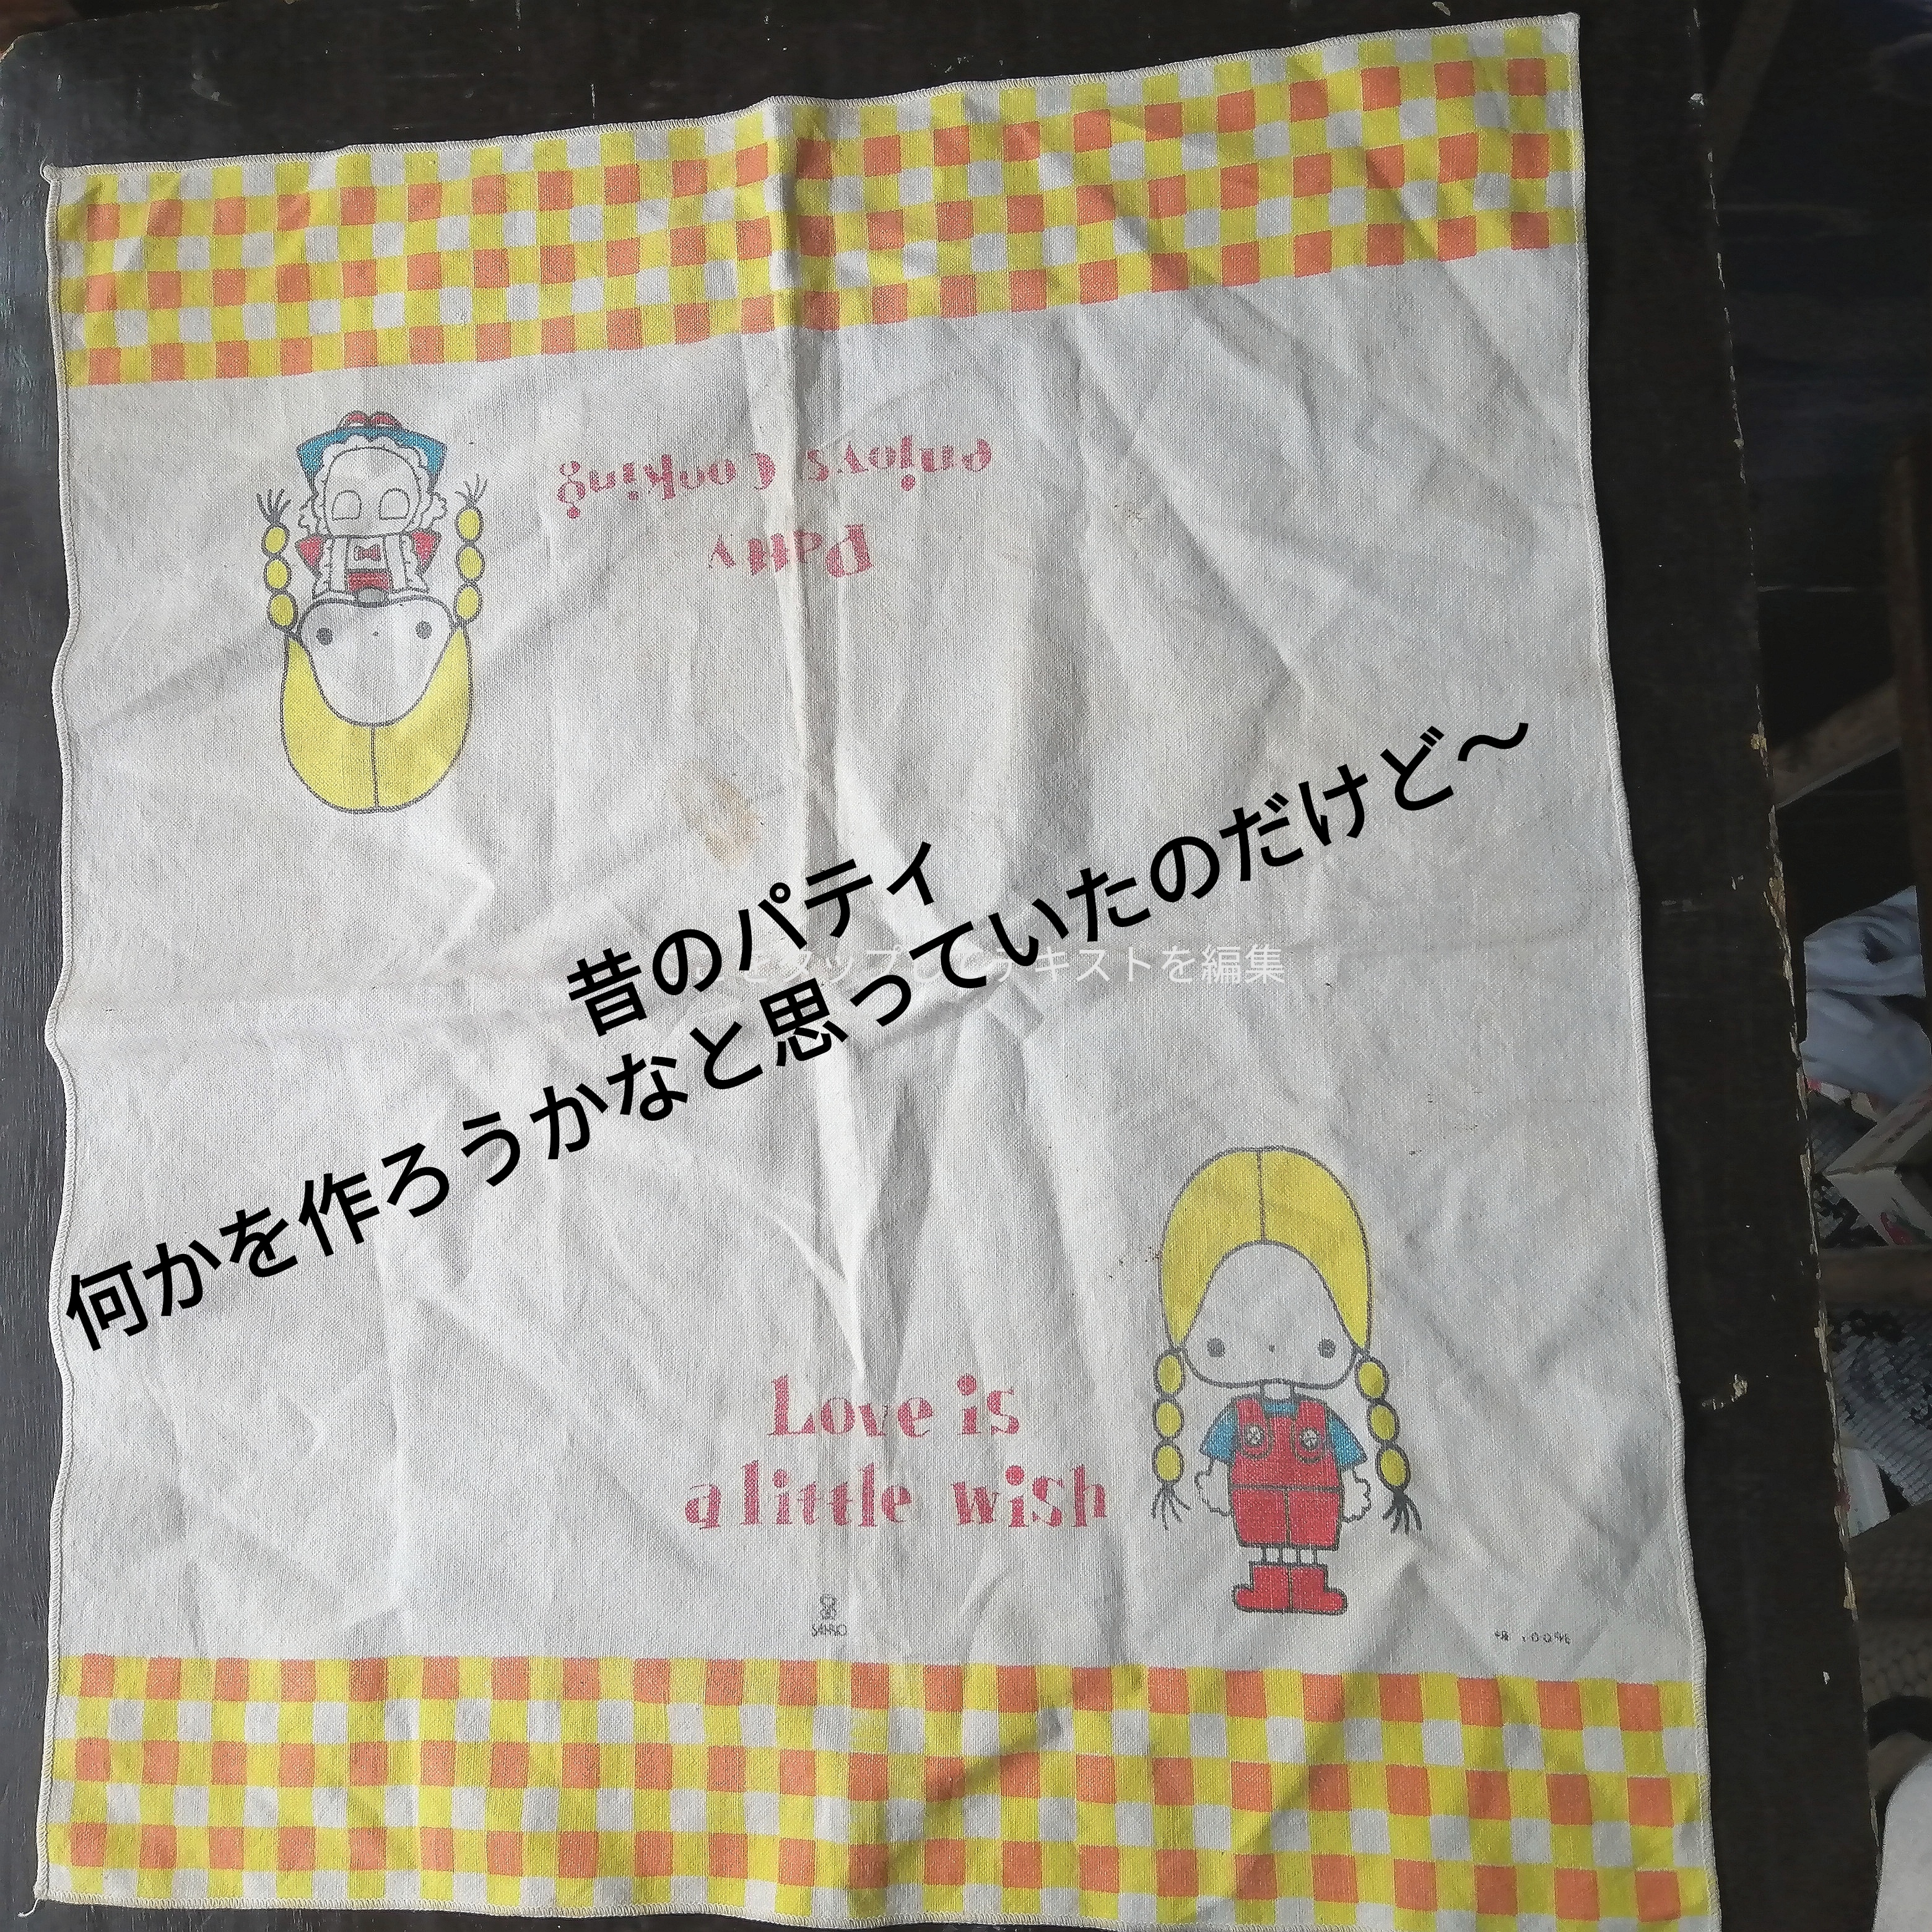 enjoys Cooking
Patty
昔のパティ
をタップしてテキストを編集
何かを作ろうかなと思っていたのだけど～
Love is
a little wish
SANRIO